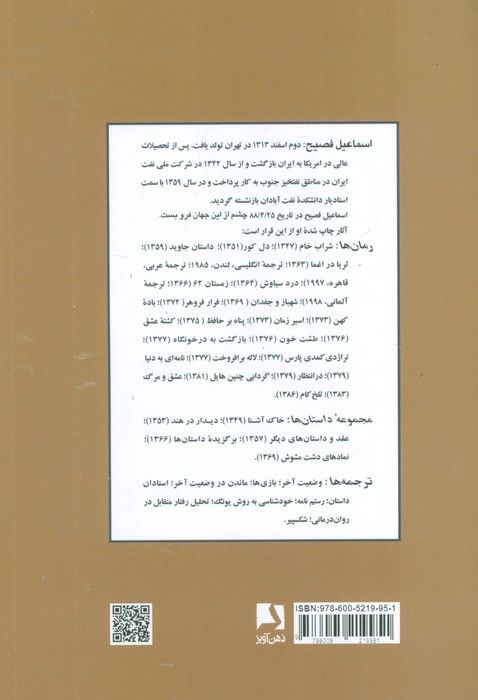 اسماعیل فصیح: دوم اسفند ۱۳۱۳ در تهران تولد یافت. پس از تحصیلات
عالی در امریکا به ایران بازگشت و از سال ۱۳۴۲ در شرکت ملی نفت
ایران در مناطق نفتخیز جنوب به کار پرداخت و در سال ۱۳۵۹ با سمت
استادیار دانشکدهٔ نفت آبادان بازنشسته گردید.
اسماعیل فصیح در تاریخ ۸۸/۴/۲۵ چشم از این جهان فرو بست.
آثار چاپ شدهٔ او از این قرار است:
رمان‌ها: شراب خام (۱۳۴۷)؛ دل کور(۱۳۵۱)؛ داستان جاوید (۱۳۵۹)؛
ثریا در اغما (۱۳۶۳؛ ترجمهٔ انگلیسی، لندن، ۱۹۸۵؛ ترجمهٔ عربی،
قاهره، ۱۹۹۷)؛ درد سیاوش (۱۳۶۴)؛ زمستان ۶۲ (۱۳۶۶؛ ترجمهٔ
آلمانی، ۱۹۹۸)؛ شهباز و جغدان (۱۳۶۹)؛ فرار فروهر (۱۳۷۲)؛ بادهٔ
کهن (۱۳۷۳)؛ اسیر زمان (۱۳۷۳)؛ پناه بر حافظ (۱۳۷۵)؛ کشتهٔ عشق
(۱۳۷۶)؛ طشت خون (۱۳۷۶)؛ بازگشت به درخونگاه (۱۳۷۷)؛
تراژدی‌کمدی پارس (۱۳۷۷)؛ لاله برافروخت (۱۳۷۷)؛ نامه‌ای به دنیا
(۱۳۷۹)؛ درانتظار (۱۳۷۹)؛ گردابی چنین هایل (۱۳۸۱)؛ عشق و مرگ
(۱۳۸۳)؛ تلخ‌کام (۱۳۸۶).
مجموعهٔ داستان‌ها: خاک آشنا (۱۳۴۹)؛ دیدار در هند (۱۳۵۳)؛
عقد و داستان‌های دیگر (۱۳۵۷)؛ برگزیدهٔ داستان‌ها (۱۳۶۶)؛
نمادهای دشت مشوش (۱۳۶۹).
ترجمه‌ها: وضعیت آخر؛ بازی‌ها؛ ماندن در وضعیت آخر؛ استادان
داستان؛ رستم نامه؛ خودشناسی به روش یونگ؛ تحلیل رفتار متقابل در
روان‌درمانی؛ شکسپیر.
ISBN: 978-600-5219-95-1
9 786005 219951
ذهن‌آویز